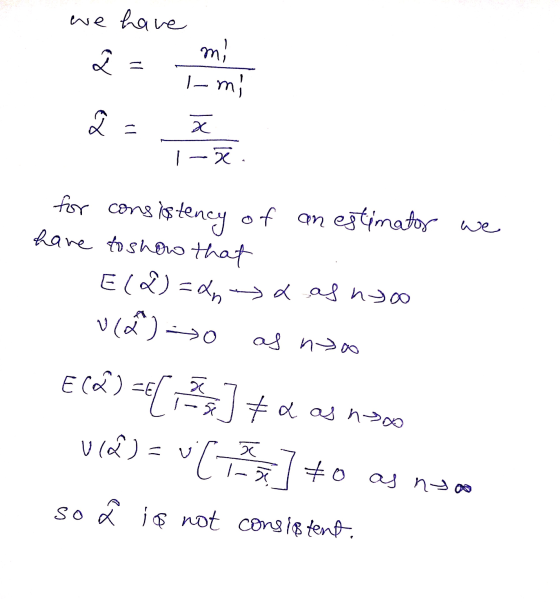 we have
α̂ = m₁' / 1 - m₁'
α̂ = x̄ / 1 - x̄.
for consistency of an estimator we
have to show that
E(α̂) = αₙ → α as n→∞
v(α̂) → 0 as n→∞
E(α̂) = E[x̄ / 1-x̄] ≠ α as n→∞
v(α̂) = v[x̄ / 1-x̄] ≠ 0 as n→∞
so α̂ is not consistent.